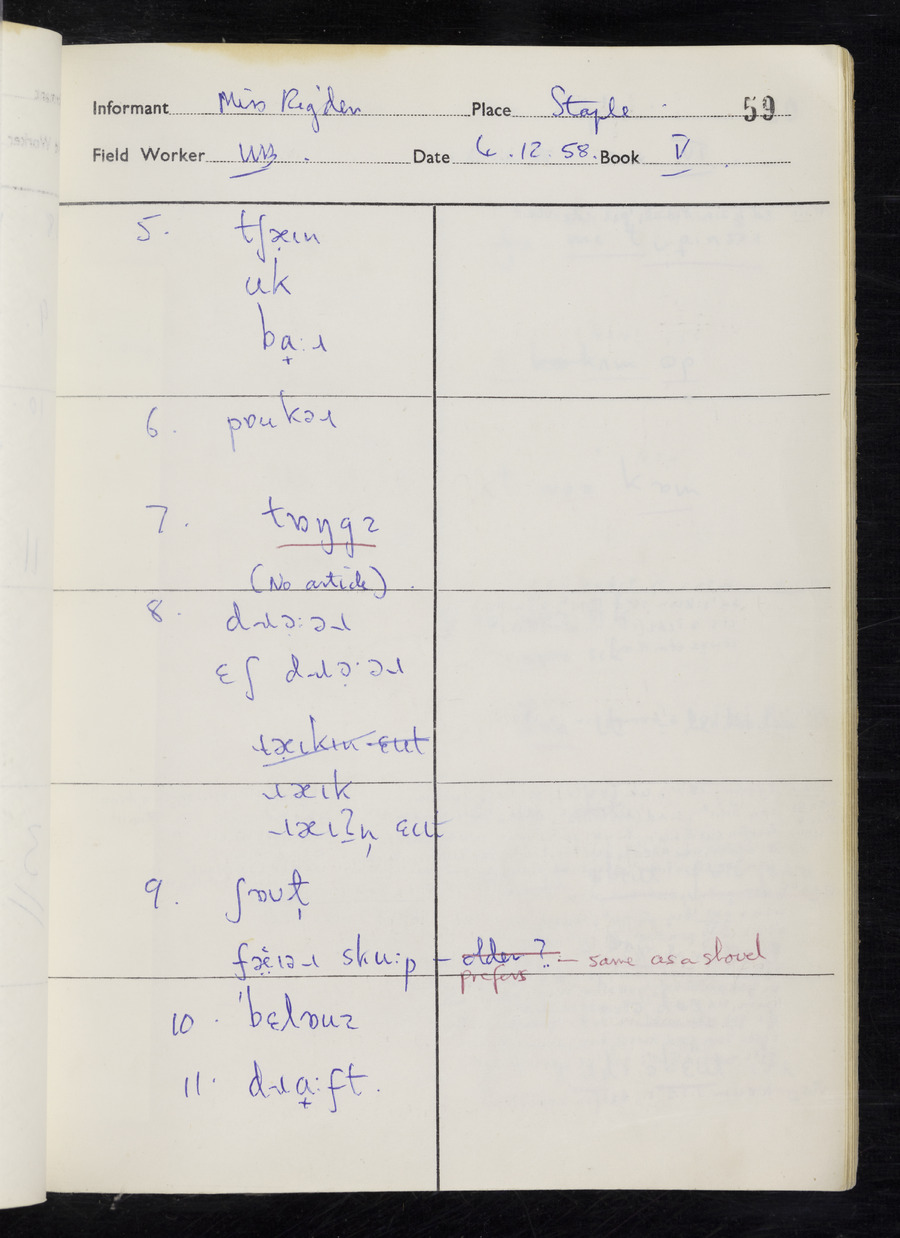 Informant Miss Rigden Place Staple 59
Field Worker WB. Date 4.12.58. Book V
5. tʃæ̣ɪn
ʊk
ba̟:ɹ
6. pɒʊkəɹ
7. tɒŋgz
(No article).
8. dɹɔ̣:əɹ
ɛʃ dɹɔ̣·əɹ
ɹæɪkɪn ɛʊt
ɹæɪk
ɹæɪʔn̩ ɛʊt
9. ʃɒʊt̩
fæ̣ɪəɹ skuːp – older? – same as a shovel
prefers
10. ˈbɛlɒʊz
11. dɹa̟:ft.